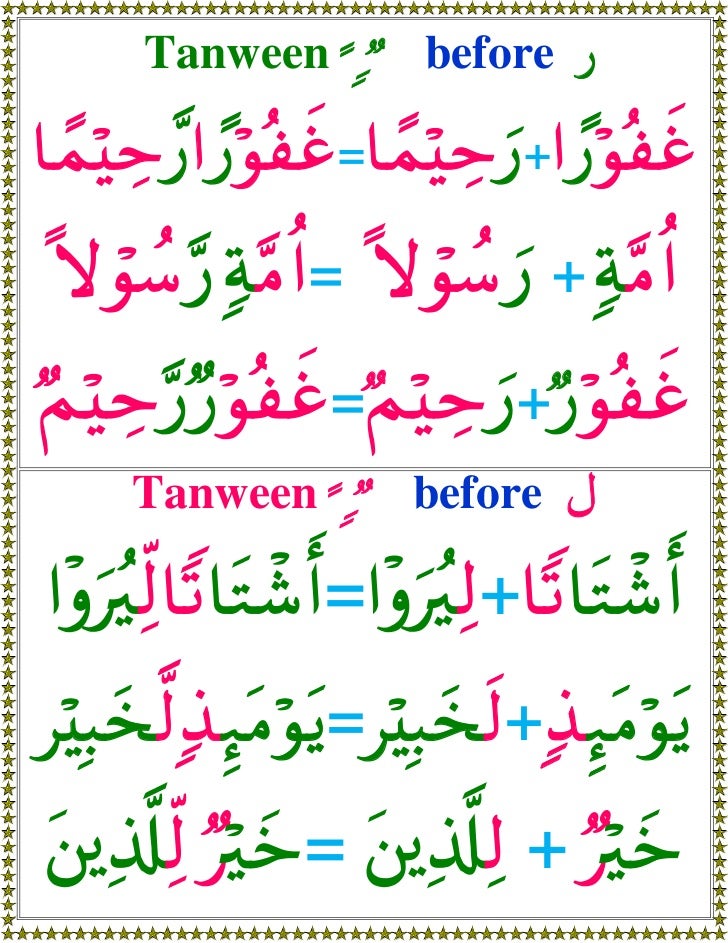 Tanween ًٌٍ before ر
غَفُوْرًا+رَحِيْمًا=غَفُوْرًارَّحِيْمًا
اُمَّةٍ + رَسُوْلاً =اُمَّةٍ رَّسُوْلاً
غَفُوْرٌ+رَحِيْمٌ=غَفُوْرٌرَّحِيْمٌ
Tanween ًٌٍ before ل
أَشْتَاتًا+لِيُرَوْا=أَشْتَاتًالِّيُرَوْا
يَوْمَئِذٍ+لَخَبِيْر=يَوْمَئِذٍلَّخَبِيْر
خَيْرٌ + لِلَّذِينَ =خَيْرٌ لِّلَّذِينَ